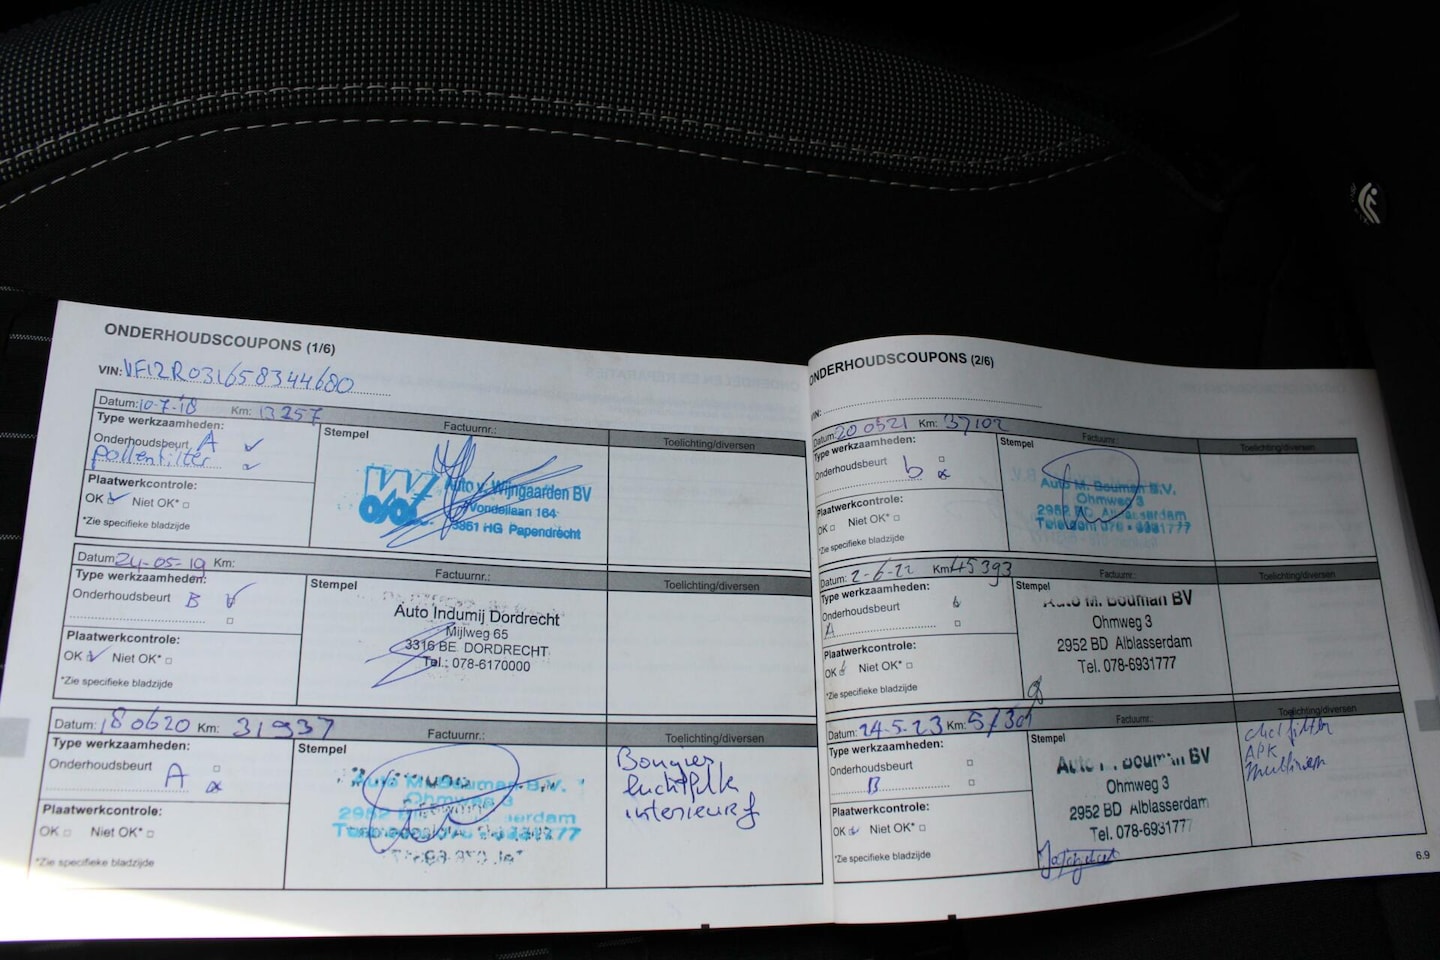 ONDERHOUDSCOUPONS (1/6)
VIN: VF12R031658344680
Datum: 10-7-18 Km: 13257
Type werkzaamheden:
Onderhoudsbeurt A
pollenfilter
Plaatwerkcontrole:
OK Niet OK*
*Zie specifieke bladzijde
Stempel
Factuurnr.:
Toelichting/diversen
Auto v. Wijngaarden BV
Vondellaan 164
3361 HG Papendrecht
Datum: 24-05-19 Km:
Type werkzaamheden:
Onderhoudsbeurt B
Plaatwerkcontrole:
OK Niet OK*
*Zie specifieke bladzijde
Stempel
Factuurnr.:
Toelichting/diversen
Auto Indumij Dordrecht
Mijlweg 65
3316 BE DORDRECHT
Tel.: 078-6170000
Datum: 180620 Km: 31937
Type werkzaamheden:
Onderhoudsbeurt
A
Plaatwerkcontrole:
OK Niet OK*
*Zie specifieke bladzijde
Stempel
Factuurnr.:
Toelichting/diversen
Auto M. Bouman B.V.
Ohmweg 3
2952 Alblasserdam
Bougies
luchtfilt
interieurf
ONDERHOUDSCOUPONS (2/6)
VIN:
Datum: 200521 Km: 37102
Type werkzaamheden:
Onderhoudsbeurt
b
Plaatwerkcontrole:
OK Niet OK*
*Zie specifieke bladzijde
Stempel
Factuurnr.:
Toelichting/diversen
Auto M. Bouman B.V.
Ohmweg 3
2952 BD Alblasserdam
Telefoon 078 - 6931777
Datum: 2-6-22 Km: 45393
Type werkzaamheden:
Onderhoudsbeurt
A
Plaatwerkcontrole:
OK Niet OK*
*Zie specifieke bladzijde
Stempel
Factuurnr.:
Toelichting/diversen
Auto M. Bouman BV
Ohmweg 3
2952 BD Alblasserdam
Tel. 078-6931777
Datum: 24-5-23 Km:
Type werkzaamheden:
Onderhoudsbeurt
B
Plaatwerkcontrole:
OK Niet OK*
*Zie specifieke bladzijde
Stempel
Factuurnr.:
Toelichting/diversen
Auto M. Bouman BV
Ohmweg 3
2952 BD Alblasserdam
Tel. 078-6931777
APK
6.9